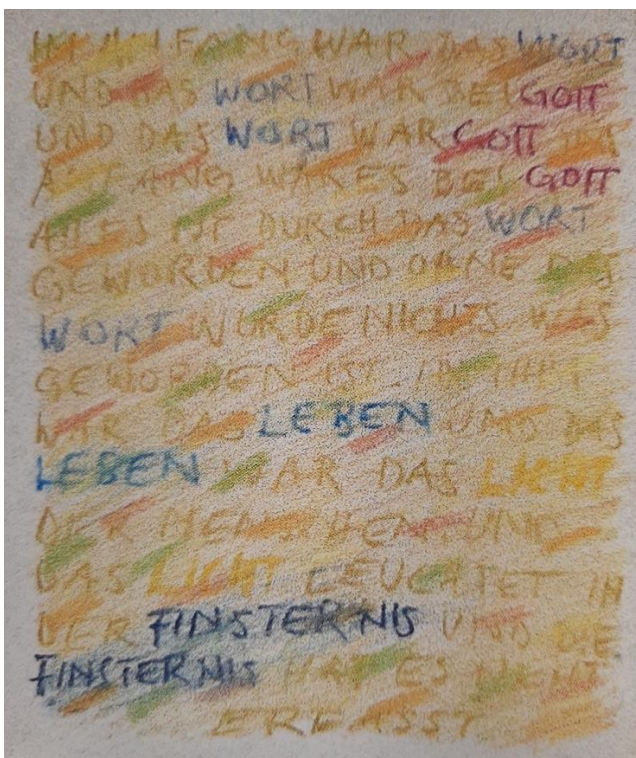 IM ANFANG WAR DAS WORT
UND DAS WORT WAR BEI GOTT
UND DAS WORT WAR GOTT IM
ANFANG WAR ES BEI GOTT
ALLES IST DURCH DAS WORT
GEWORDEN UND OHNE DAS
WORT WURDE NICHTS WAS
GEWORDEN IST. IN IHM
WAR DAS LEBEN UND DAS
LEBEN WAR DAS LICHT
DER MENSCHEN UND
DAS LICHT LEUCHTET IN
DER FINSTERNIS UND DIE
FINSTERNIS HAT ES NICHT
ERFASST